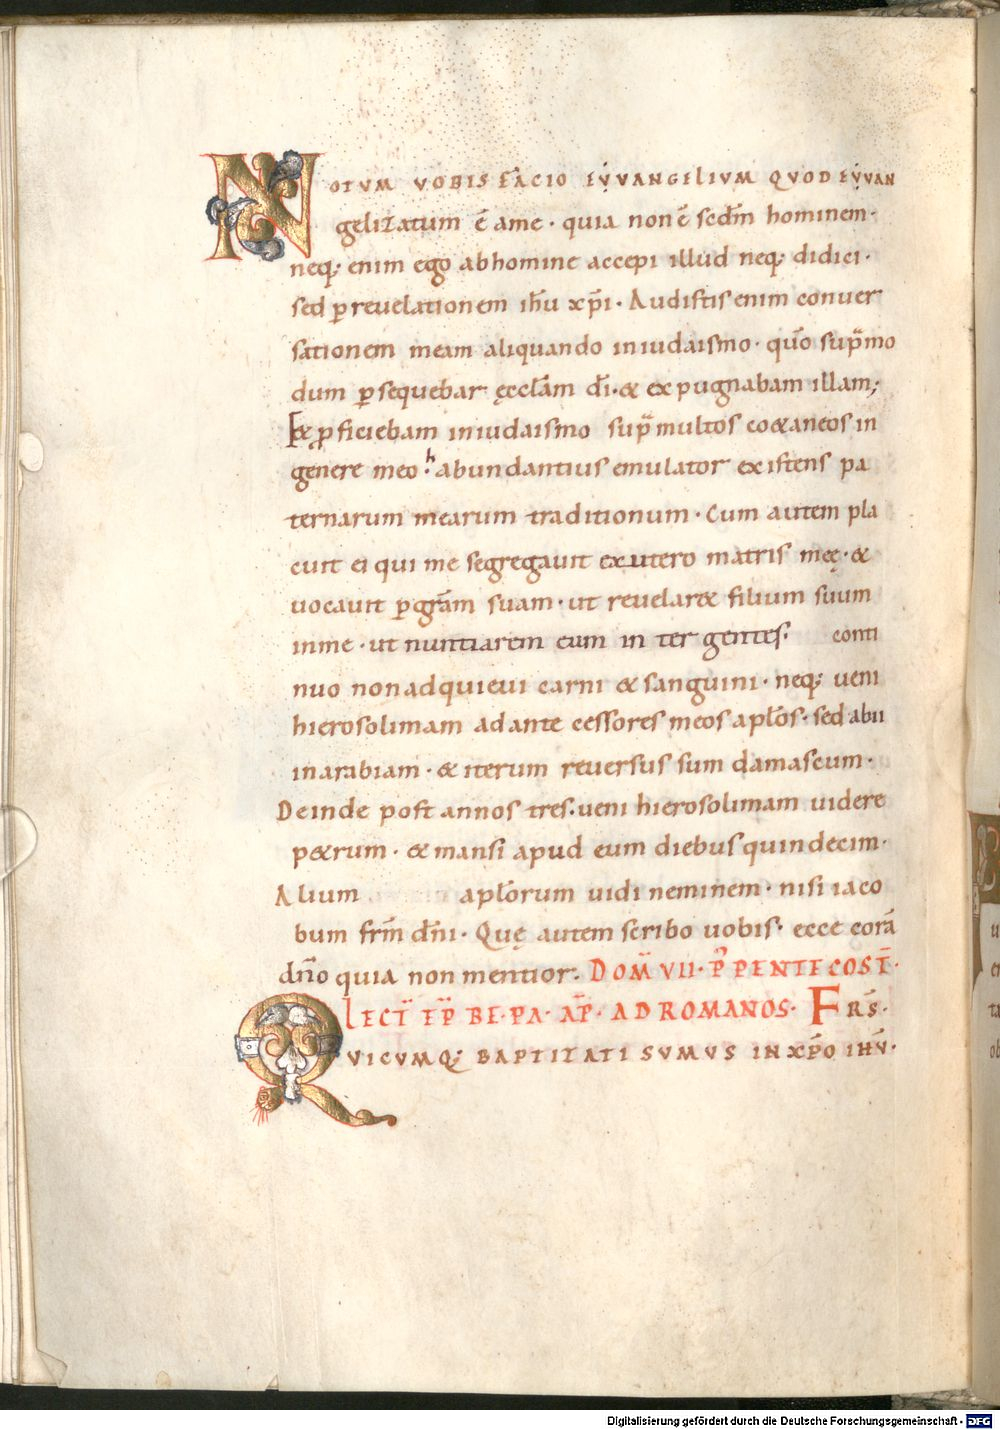 NOTUM VOBIS FACIO EVVANGELIVM QVOD EVVAN
gelizatum ē ame · quia non ē scdm̄ hominem ·
neq; enim ego abhomine accepi illud neq; didici ·
sed ꝑ reuelationem ihū xp̄i · Audistis enim conuer
sationem meam aliquando iniudaismo · qūo sup̄mo
dum ꝑsequebar ęccłam dī · & expugnabam illam;
Et ꝓficiebam iniudaismo sup̄ multos co&aneos in
genere meo · habundantius emulator existens pa
ternarum mearum traditionum · Cum autem pla
cuit ei qui me segregauit exutero matris meę · &
uocauit ꝑ grām suam · ut reuelar& filium suum
inme · ut nuntiarem eum in ter gentes · conti
nuo nonadquieui carni & sanguini · neq; ueni
hierosolimam adante cessores meos apłos · sed abii
inarabiam · & iterum reuersus sum damascum ·
Deinde post annos tres · ueni hierosolimam uidere
p&rum · & mansi apud eum diebus quindecim ·
Alium apłorum uidi neminem · nisi iaco
bum frm̄ dn̄i · Quę autem scribo uobis · ecce corā
dn̄o quia non mentior · DOM̄ VII · P̄ PENTECOST̄ ·
LECT̄ EP̄ BE · PA · AP̄ · AD ROMANOS · FRS̄ ·
QVICVMQ; BAPTIZATI SVMVS IN XP̄O IHV̄ ·
Digitalisierung gefördert durch die Deutsche Forschungsgemeinschaft - DFG